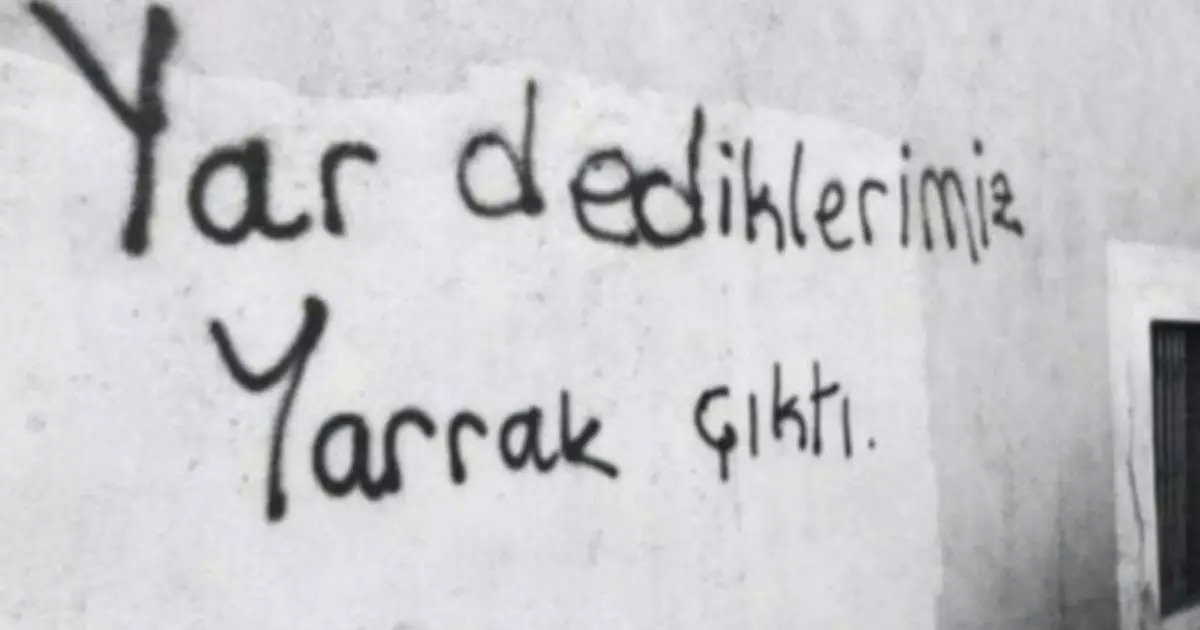 Yar dediklerimiz
Yarrak çıktı.